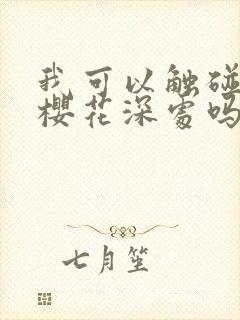 我可以触碰
樱花深处吗
七月笙